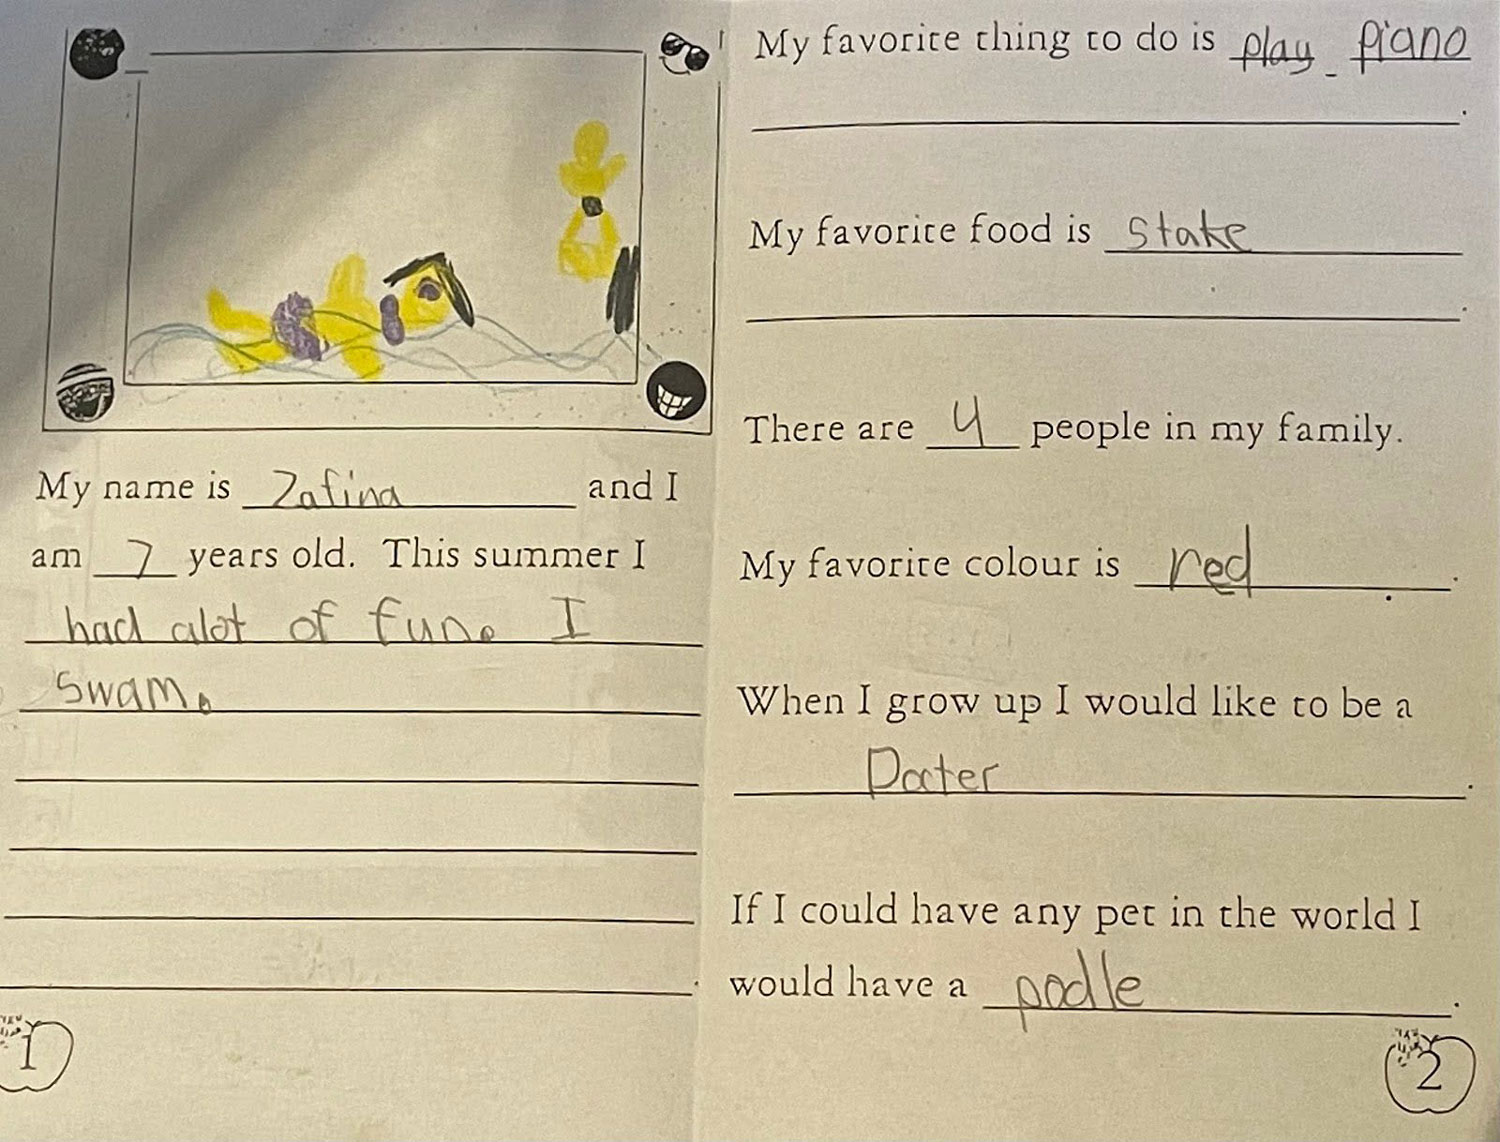 My name is Zafina and I
am 7 years old. This summer I
had alot of fun. I
swam.
1
My favorite thing to do is play piano
.
My favorite food is stake
.
There are 4 people in my family.
My favorite colour is red.
When I grow up I would like to be a
Docter.
If I could have any pet in the world I
would have a podle.
2